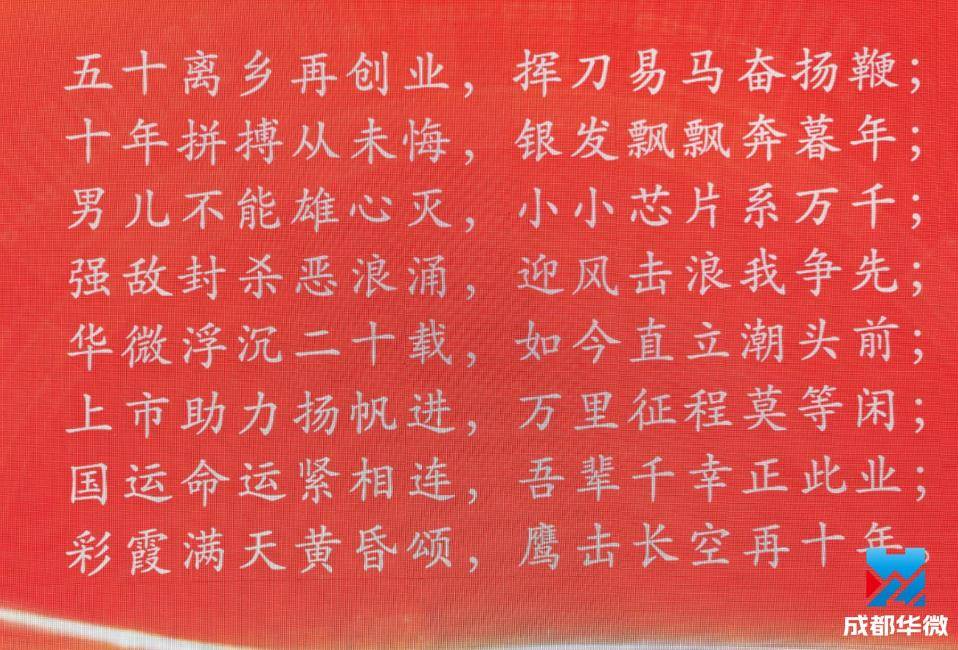 五十离乡再创业，挥刀易马奋扬鞭；
十年拼搏从未悔，银发飘飘奔暮年；
男儿不能雄心灭，小小芯片系万千；
强敌封杀恶浪涌，迎风击浪我争先；
华微浮沉二十载，如今直立潮头前；
上市助力扬帆进，万里征程莫等闲；
国运命运紧相连，吾辈千幸正此业；
彩霞满天黄昏颂，鹰击长空再十年。
成都华微